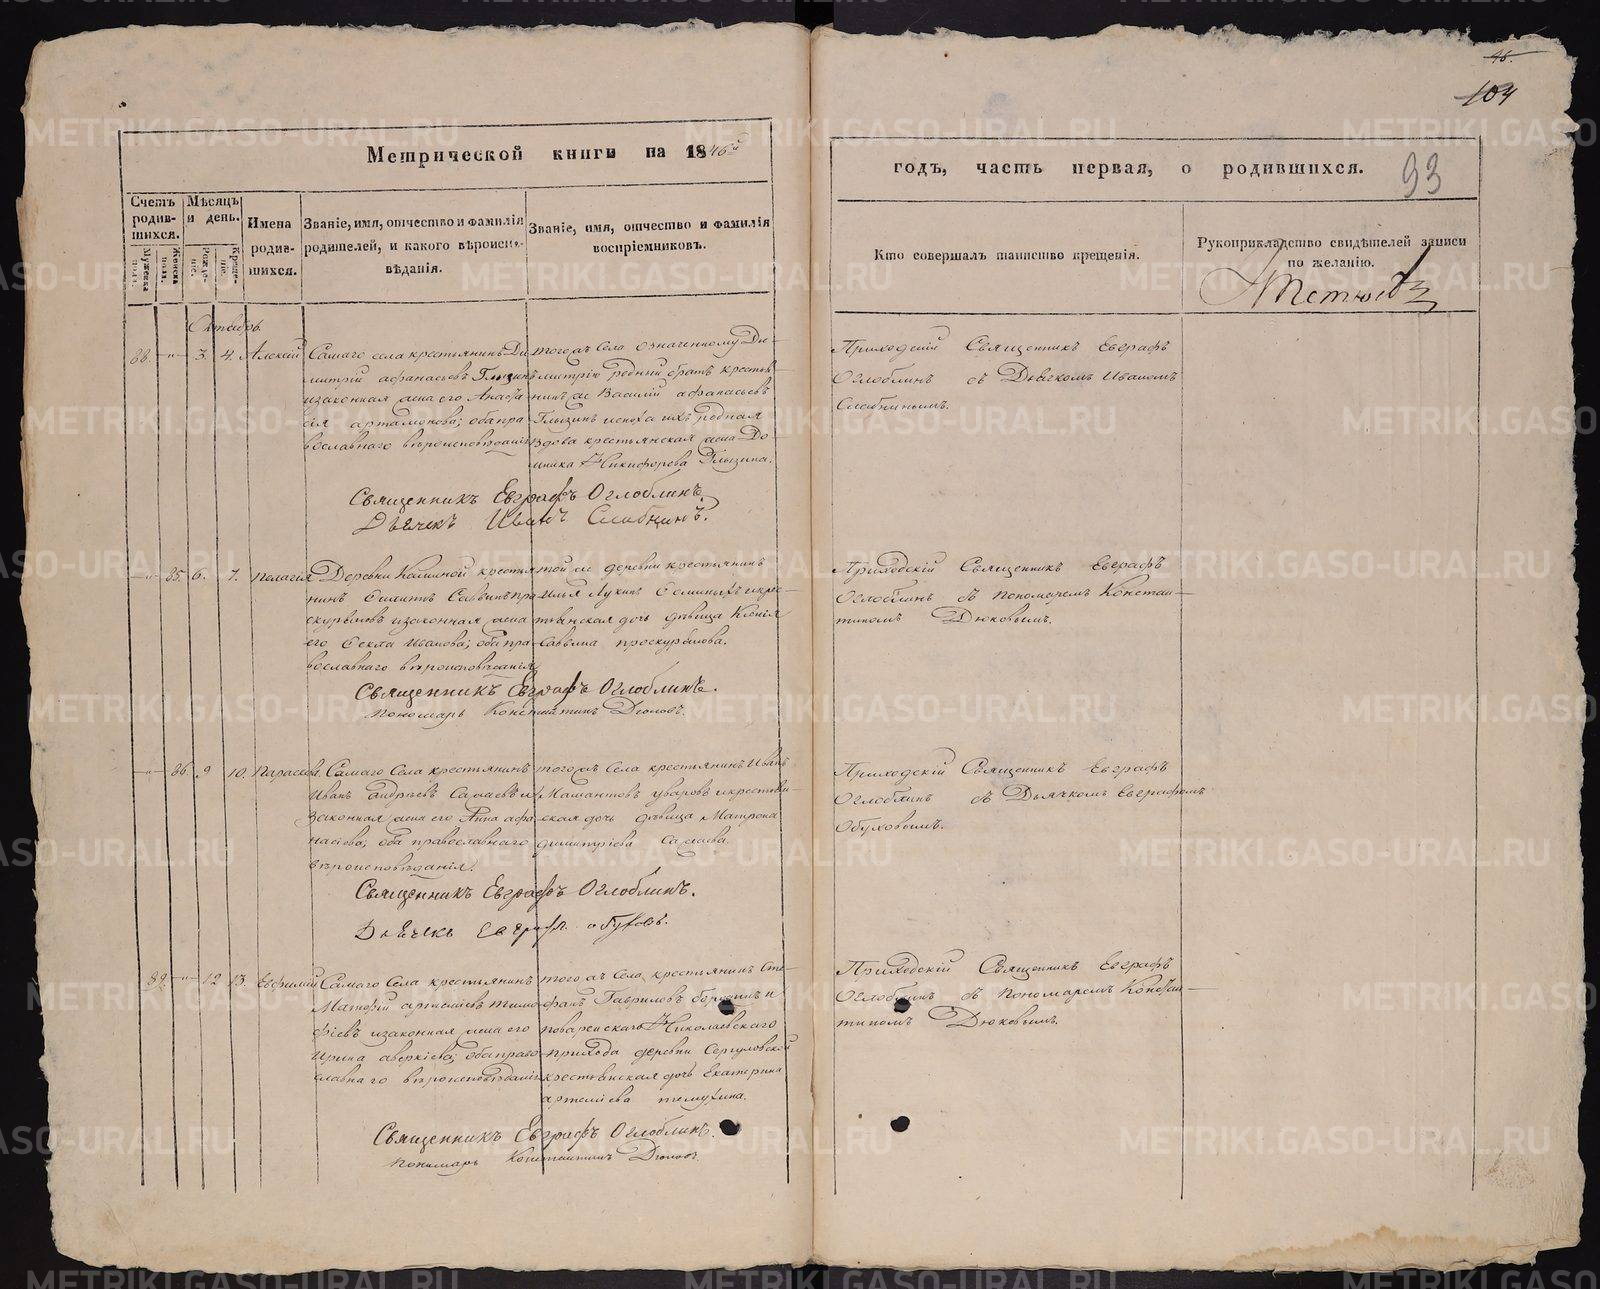 45.
104
93
Метрической книги на 1846й
годъ, часть первая, о родившихся.
Счетъ родившихся.
Мужеска полъ.
Женска полъ.
Мѣсяцъ и день.
Рожденіе.
Крещеніе.
Имена родившихся.
Званіе, имя, отчество и фамилія родителей, и какого вѣроисповѣданія.
Званіе, имя, отчество и фамилія воспріемниковъ.
Кто совершалъ таинство крещенія.
Рукоприкладство свидѣтелей записи по желанію.
Октябрь.
88. -"- 3. 4. Алексій
Самаго села крестьянинъ Ди-
митрій афанасьевъ Глызинъ
изаконная жена его Анаста
сія артамонова; оба пра
вославнаго вѣроисповѣданія
тогожъ Села означенному Ди-
митрію родный братъ крестья
нинъ же Василій афанасьевъ
Глызинъ
вдова крестьянская жена До-
мника Никифорова Глызина.
Приходскій Священникъ Евграфъ
Оглоблинъ съ Дьячкомъ Иваномъ
Слабнинымъ.
Священникъ Евграфъ Оглоблинъ.
Дьячекъ Иванъ Слабнинъ.
-"- 85. 6. 7. Пелагія
Деревни крестья
нинъ Саввинъ про
скуряковъ изаконная жена
его Фекла Иванова; оба пра
вославнаго вѣроисповѣданія
той же деревни крестьянинъ
Илья Лукинъ икрес-
тьянская дочь дѣвица Ксенія
Савьина проскурякова.
Приходскій Священникъ Евграфъ
Оглоблинъ съ пономаремъ Констан-
тиномъ Дюковымъ.
Священникъ Евграфъ Оглоблинъ.
пономарь Константинъ Дюковъ.
-"- 86. 9 10. Параскева.
Самаго Села крестьянинъ
Иванъ андреевъ
законная жена его Анна афа
насіева; оба православнаго
вѣроисповѣданія.
тогожъ Села крестьянинъ Иванъ
уваровъ икрестьян-
ская дочь дѣвица Матрона
димитріева
Приходскій Священникъ Евграфъ
Оглоблинъ съ Дьячкомъ Евграфомъ
Обуховымъ.
Священникъ Евграфъ Оглоблинъ.
Дьячекъ Евграфъ обуховъ.
89. -"- 12 13. Евфимій
Самаго Села крестьянинъ
артемьевъ тимо
фіевъ изаконная жена его
Ирина аверкіева; оба право
славнаго вѣроисповѣданія
тогожъ Села крестьянинъ Сте-
фанъ Гавриловъ и
Николаевскаго
прихода деревни
крестьянская дочь Екатерина
артеміева
Приходскій Священникъ Евграфъ
Оглоблинъ съ пономаремъ Констан-
тиномъ Дюковымъ.
Священникъ Евграфъ Оглоблинъ.
пономарь Константинъ Дюковъ.
METRIKI.GASO-URAL.RU